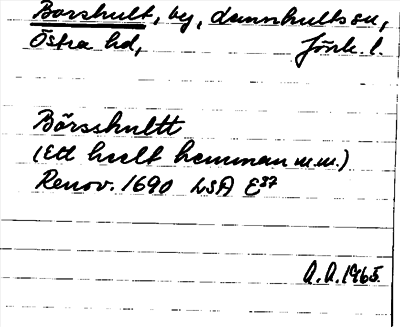 Barshult, by, Lannhults sn,
Östra hd, Jönk. l.
Börsshultt
(Ett heelt hemman m.m.)
Renov. 1690 LSA E37
A.A. 1965